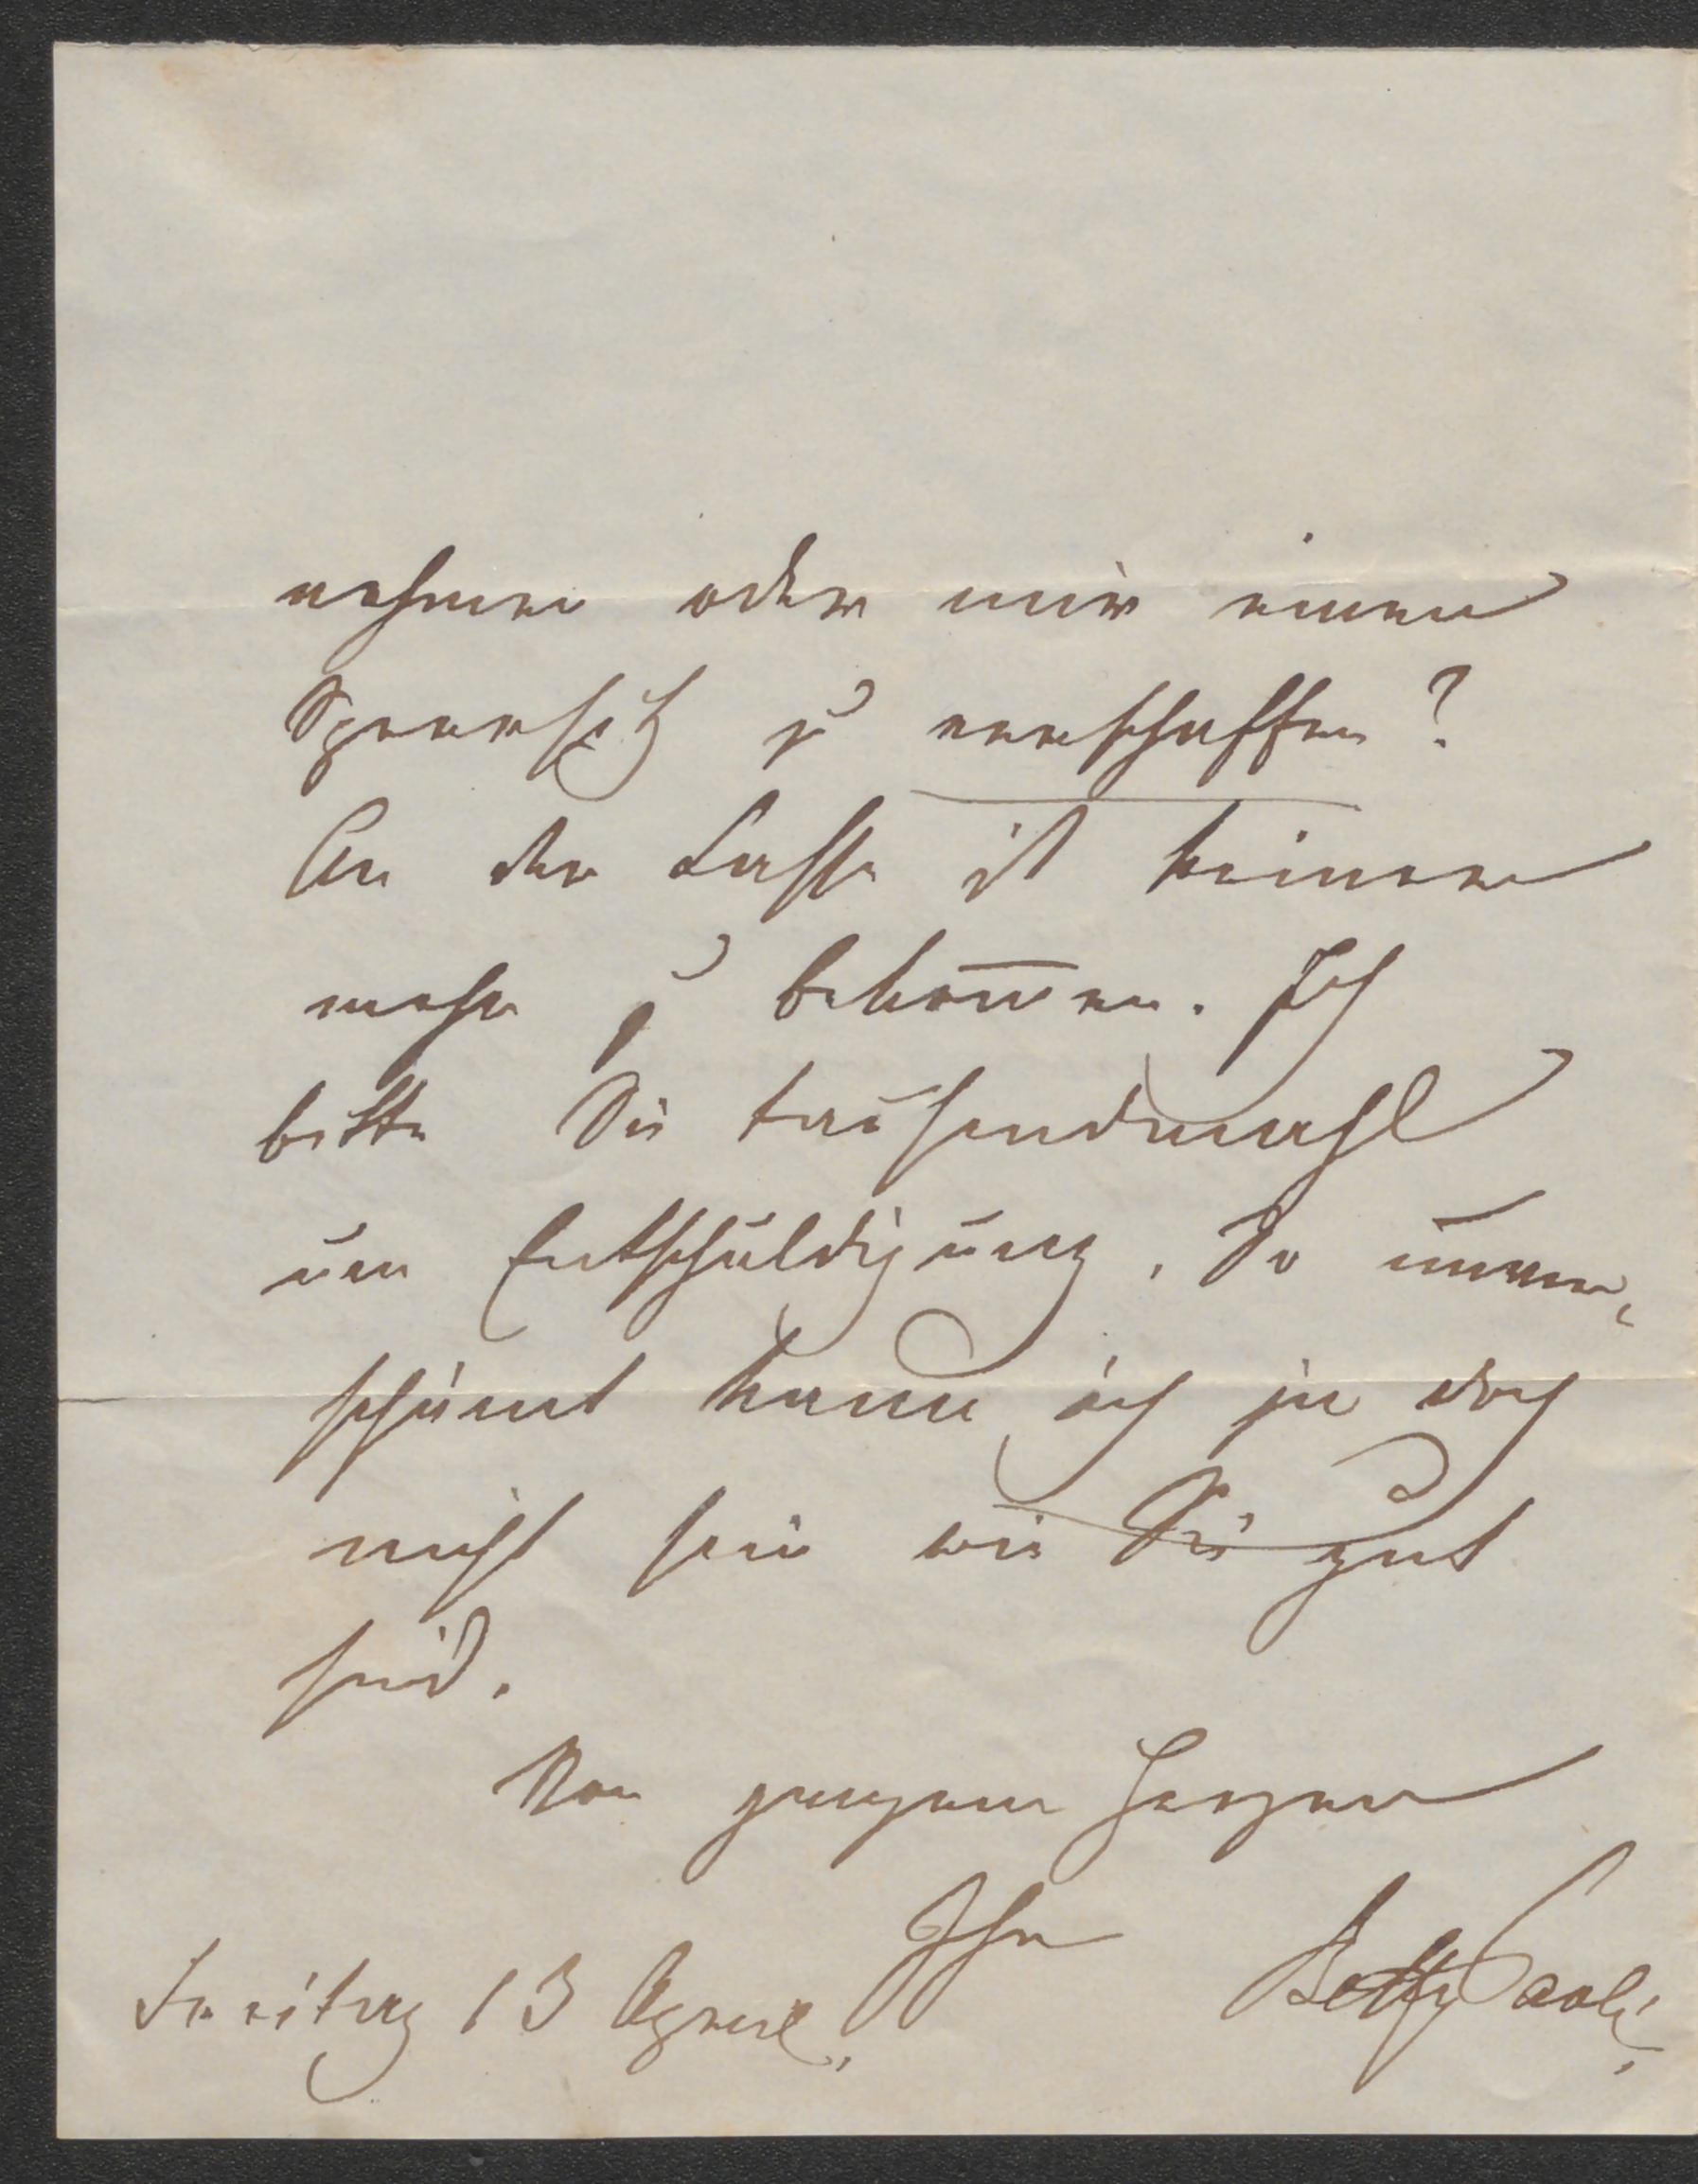 nehmen oder mir einen
Sperrsitz zu verschaffen?
An der Casse ist keiner
mehr zu bekom̅en. Ich
bitte Sie tausendmahl
um Entschuldigung. So unver-
schämt kann ich ja doch
nicht sein wie Sie gut
sind.
Von ganzem Herzen
Ihre
Betty Paoli.
Freitag 13 April.